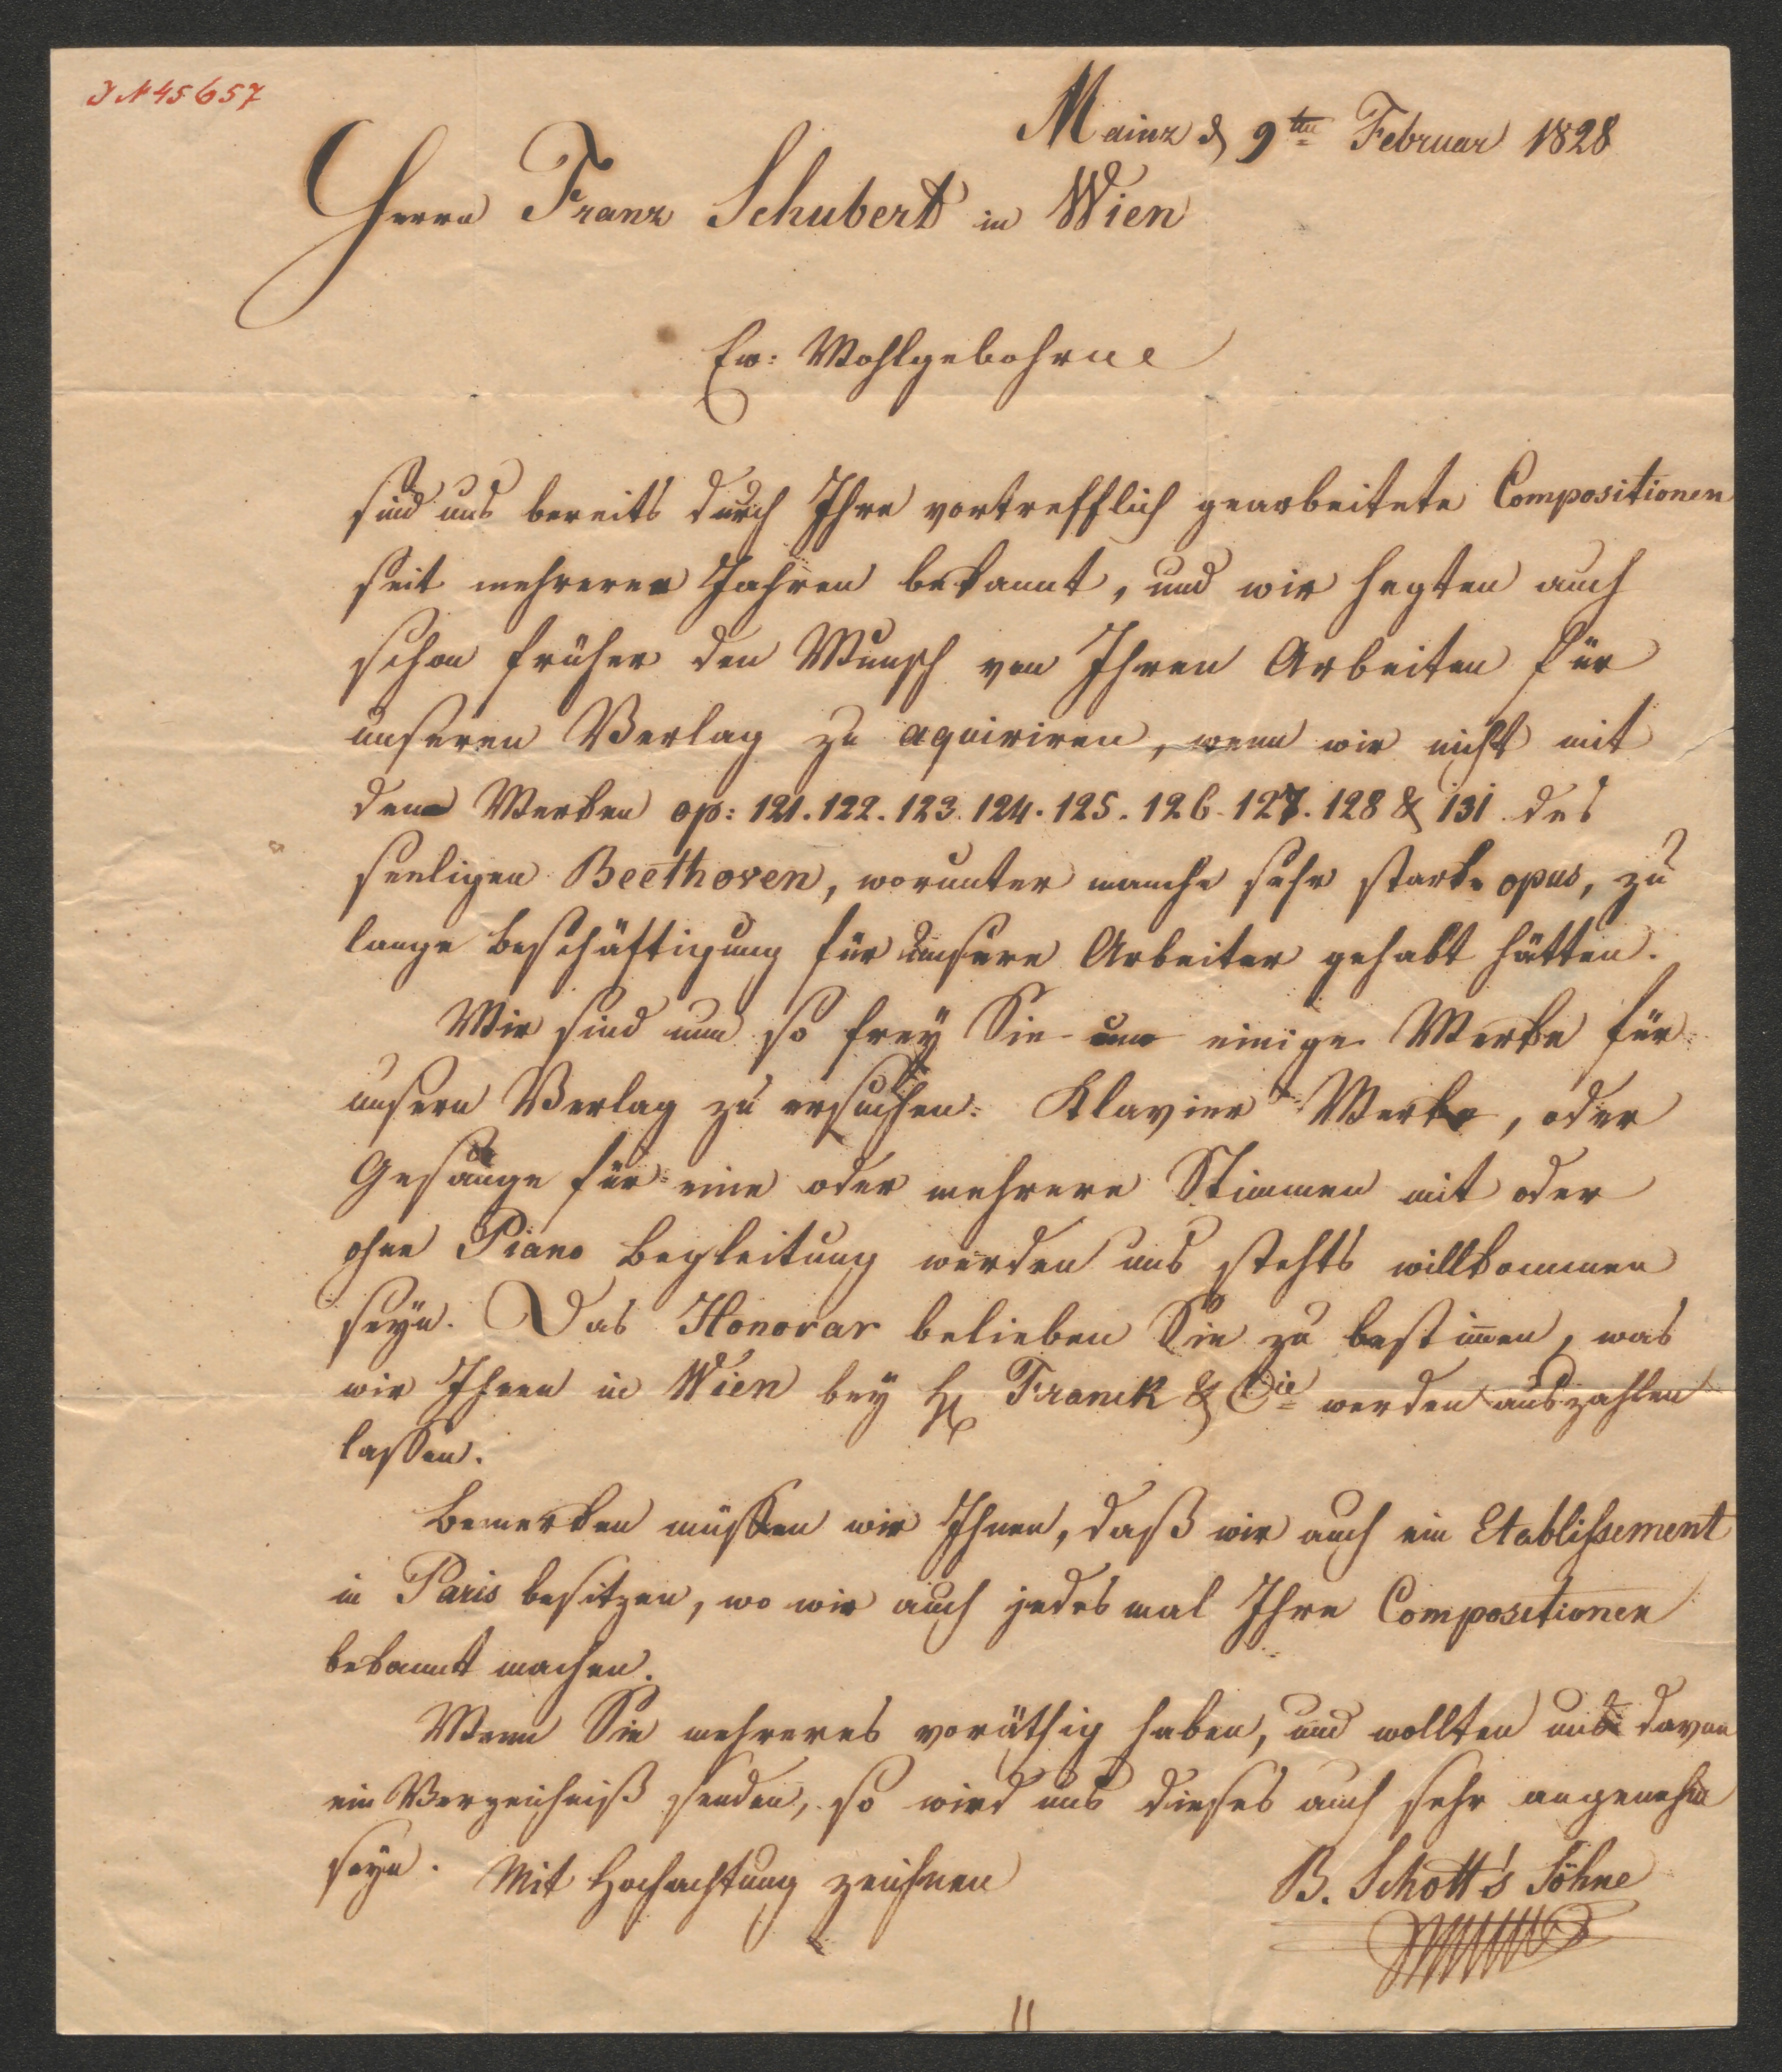 J N 45657
Mainz d 9ten Februar 1828
Herrn Franz Schubert in Wien
Ew: Wohlgebohrne
sind uns bereits durch Ihre vortrefflich gearbeitete Compositionen
seit mehreren Jahren bekannt, und wir hegten auch
schon früher den Wunsch von Ihren Arbeiten für
unseren Verlag zu aquiriren, wenn wir nicht mit
den Werken op: 121. 122. 123. 124. 125. 126. 127. 128 & 131 des
seeligen Beethoven, worunter manche sehr starke opus, zu
lange Beschäftigung für unsere Arbeiter gehabt hätten.
Wir sind nun so frey Sie um einige Werke für
unsern Verlag zu ersuchen. Klavier Werke, oder
Gesänge für eine oder mehrere Stimmen mit oder
ohne Piano Begleitung werden uns stehts willkommen
seyn. Das Honorar belieben Sie zu bestim̄en, was
wir Ihnen in Wien bey H Franck & Cie werden auszahlen
lassen.
Bemerken müssen wir Ihnen, daß wir auch ein Etablissement
in Paris besitzen, wo wir auch jedes mal Ihre Compositionen
bekannt machen.
Wenn Sie mehreres voräthig haben, und wollten uns davon
ein Verzeichniß senden, so wird uns dieses auch sehr angenehm
seyn. Mit Hochachtung zeichnen
B. Schott's Söhne